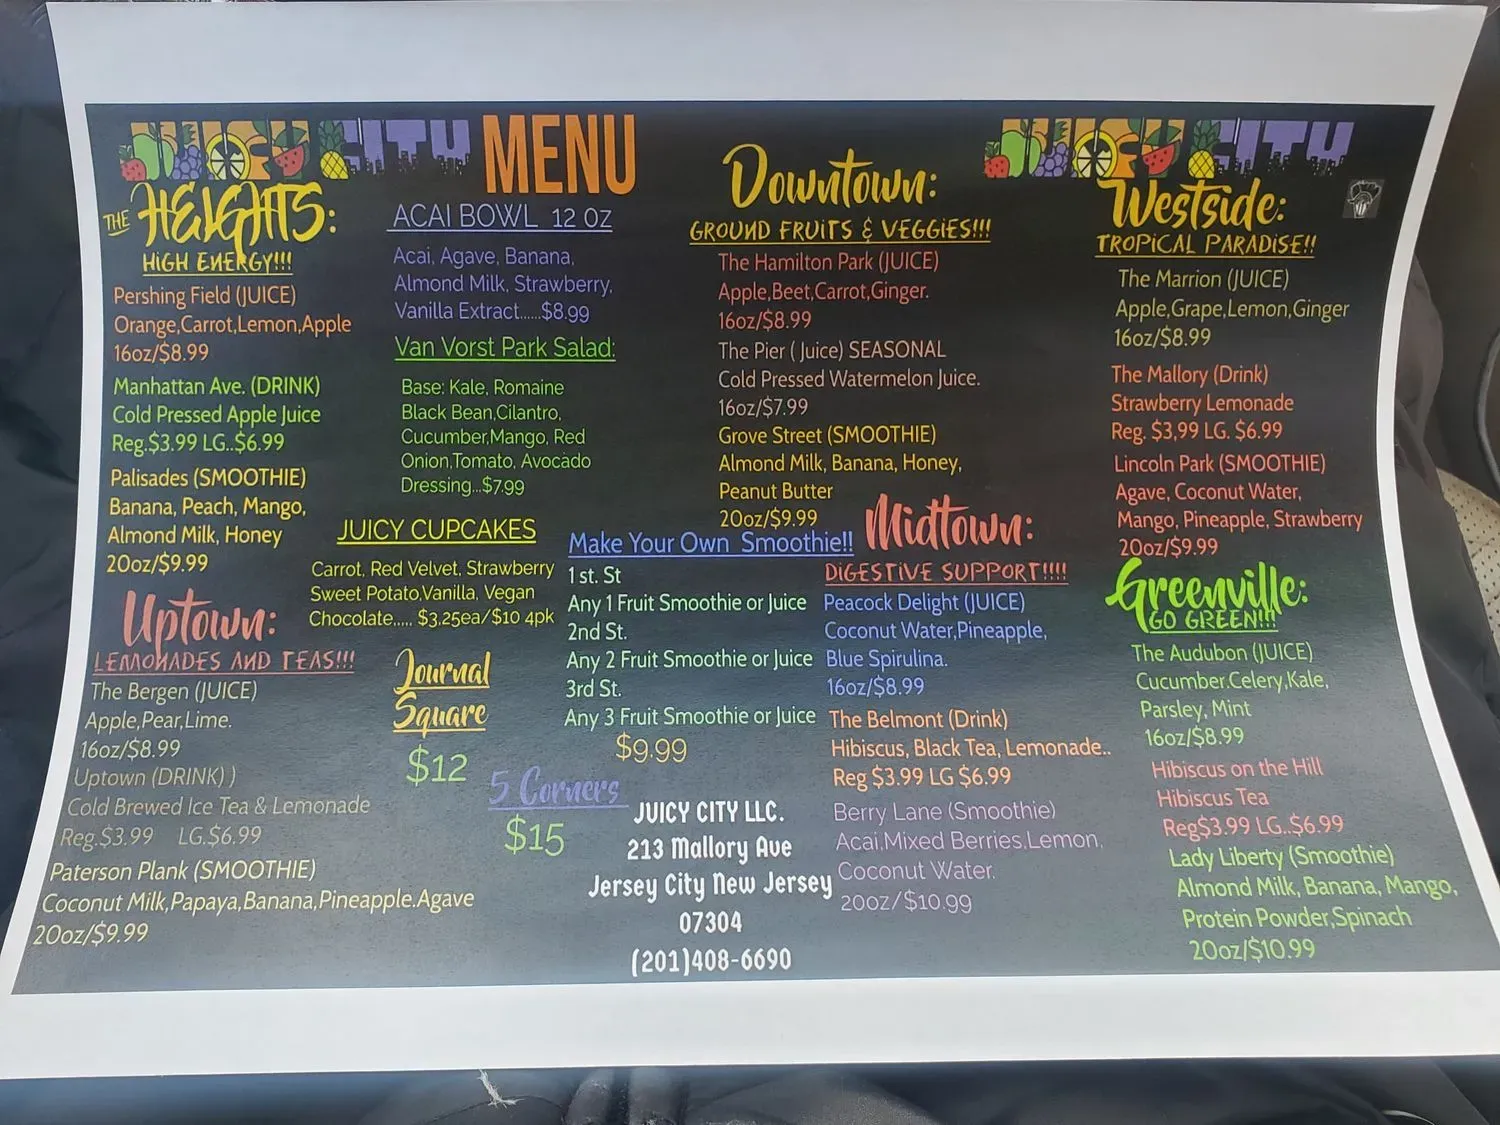 JUICY CITY MENU
THE HEIGHTS:
HIGH ENERGY!!!
Pershing Field (JUICE)
Orange,Carrot,Lemon,Apple
16oz/$8.99
Manhattan Ave. (DRINK)
Cold Pressed Apple Juice
Reg.$3.99 LG..$6.99
Palisades (SMOOTHIE)
Banana, Peach, Mango,
Almond Milk, Honey
20oz/$9.99
Uptown:
LEMONADES AND TEAS!!!
The Bergen (JUICE)
Apple,Pear,Lime.
16oz/$8.99
Uptown (DRINK) )
Cold Brewed Ice Tea & Lemonade
Reg.$3.99 LG.$6.99
Paterson Plank (SMOOTHIE)
Coconut Milk,Papaya,Banana,Pineapple.Agave
20oz/$9.99
ACAI BOWL 12 OZ
Acai, Agave, Banana,
Almond Milk, Strawberry,
Vanilla Extract......$8.99
Van Vorst Park Salad:
Base: Kale, Romaine
Black Bean,Cilantro,
Cucumber,Mango, Red
Onion,Tomato, Avocado
Dressing...$7.99
JUICY CUPCAKES
Carrot, Red Velvet, Strawberry
Sweet Potato,Vanilla, Vegan
Chocolate..... $3.25ea/$10 4pk
Journal
Square
$12
5 Corners
$15
Make Your Own Smoothie!!
1 st. St
Any 1 Fruit Smoothie or Juice
2nd St.
Any 2 Fruit Smoothie or Juice
3rd St.
Any 3 Fruit Smoothie or Juice
$9.99
JUICY CITY LLC.
213 Mallory Ave
Jersey City New Jersey
07304
(201)408-6690
Downtown:
GROUND FRUITS & VEGGIES!!!
The Hamilton Park (JUICE)
Apple,Beet,Carrot,Ginger.
16oz/$8.99
The Pier ( Juice) SEASONAL
Cold Pressed Watermelon Juice.
16oz/$7.99
Grove Street (SMOOTHIE)
Almond Milk, Banana, Honey,
Peanut Butter
20oz/$9.99
Midtown:
DIGESTIVE SUPPORT!!!!
Peacock Delight (JUICE)
Coconut Water,Pineapple,
Blue Spirulina.
16oz/$8.99
The Belmont (Drink)
Hibiscus, Black Tea, Lemonade..
Reg $3.99 LG $6.99
Berry Lane (Smoothie)
Acai,Mixed Berries,Lemon,
Coconut Water.
20oz/$10.99
JUICY CITY
Westside:
TROPICAL PARADISE!!
The Marrion (JUICE)
Apple,Grape,Lemon,Ginger
16oz/$8.99
The Mallory (Drink)
Strawberry Lemonade
Reg. $3,99 LG. $6.99
Lincoln Park (SMOOTHIE)
Agave, Coconut Water,
Mango, Pineapple, Strawberry
20oz/$9.99
Greenville:
GO GREEN!!!
The Audubon (JUICE)
Cucumber.Celery,Kale,
Parsley, Mint
16oz/$8.99
Hibiscus on the Hill
Hibiscus Tea
Reg$3.99 LG..$6.99
Lady Liberty (Smoothie)
Almond Milk, Banana, Mango,
Protein Powder,Spinach
20oz/$10.99